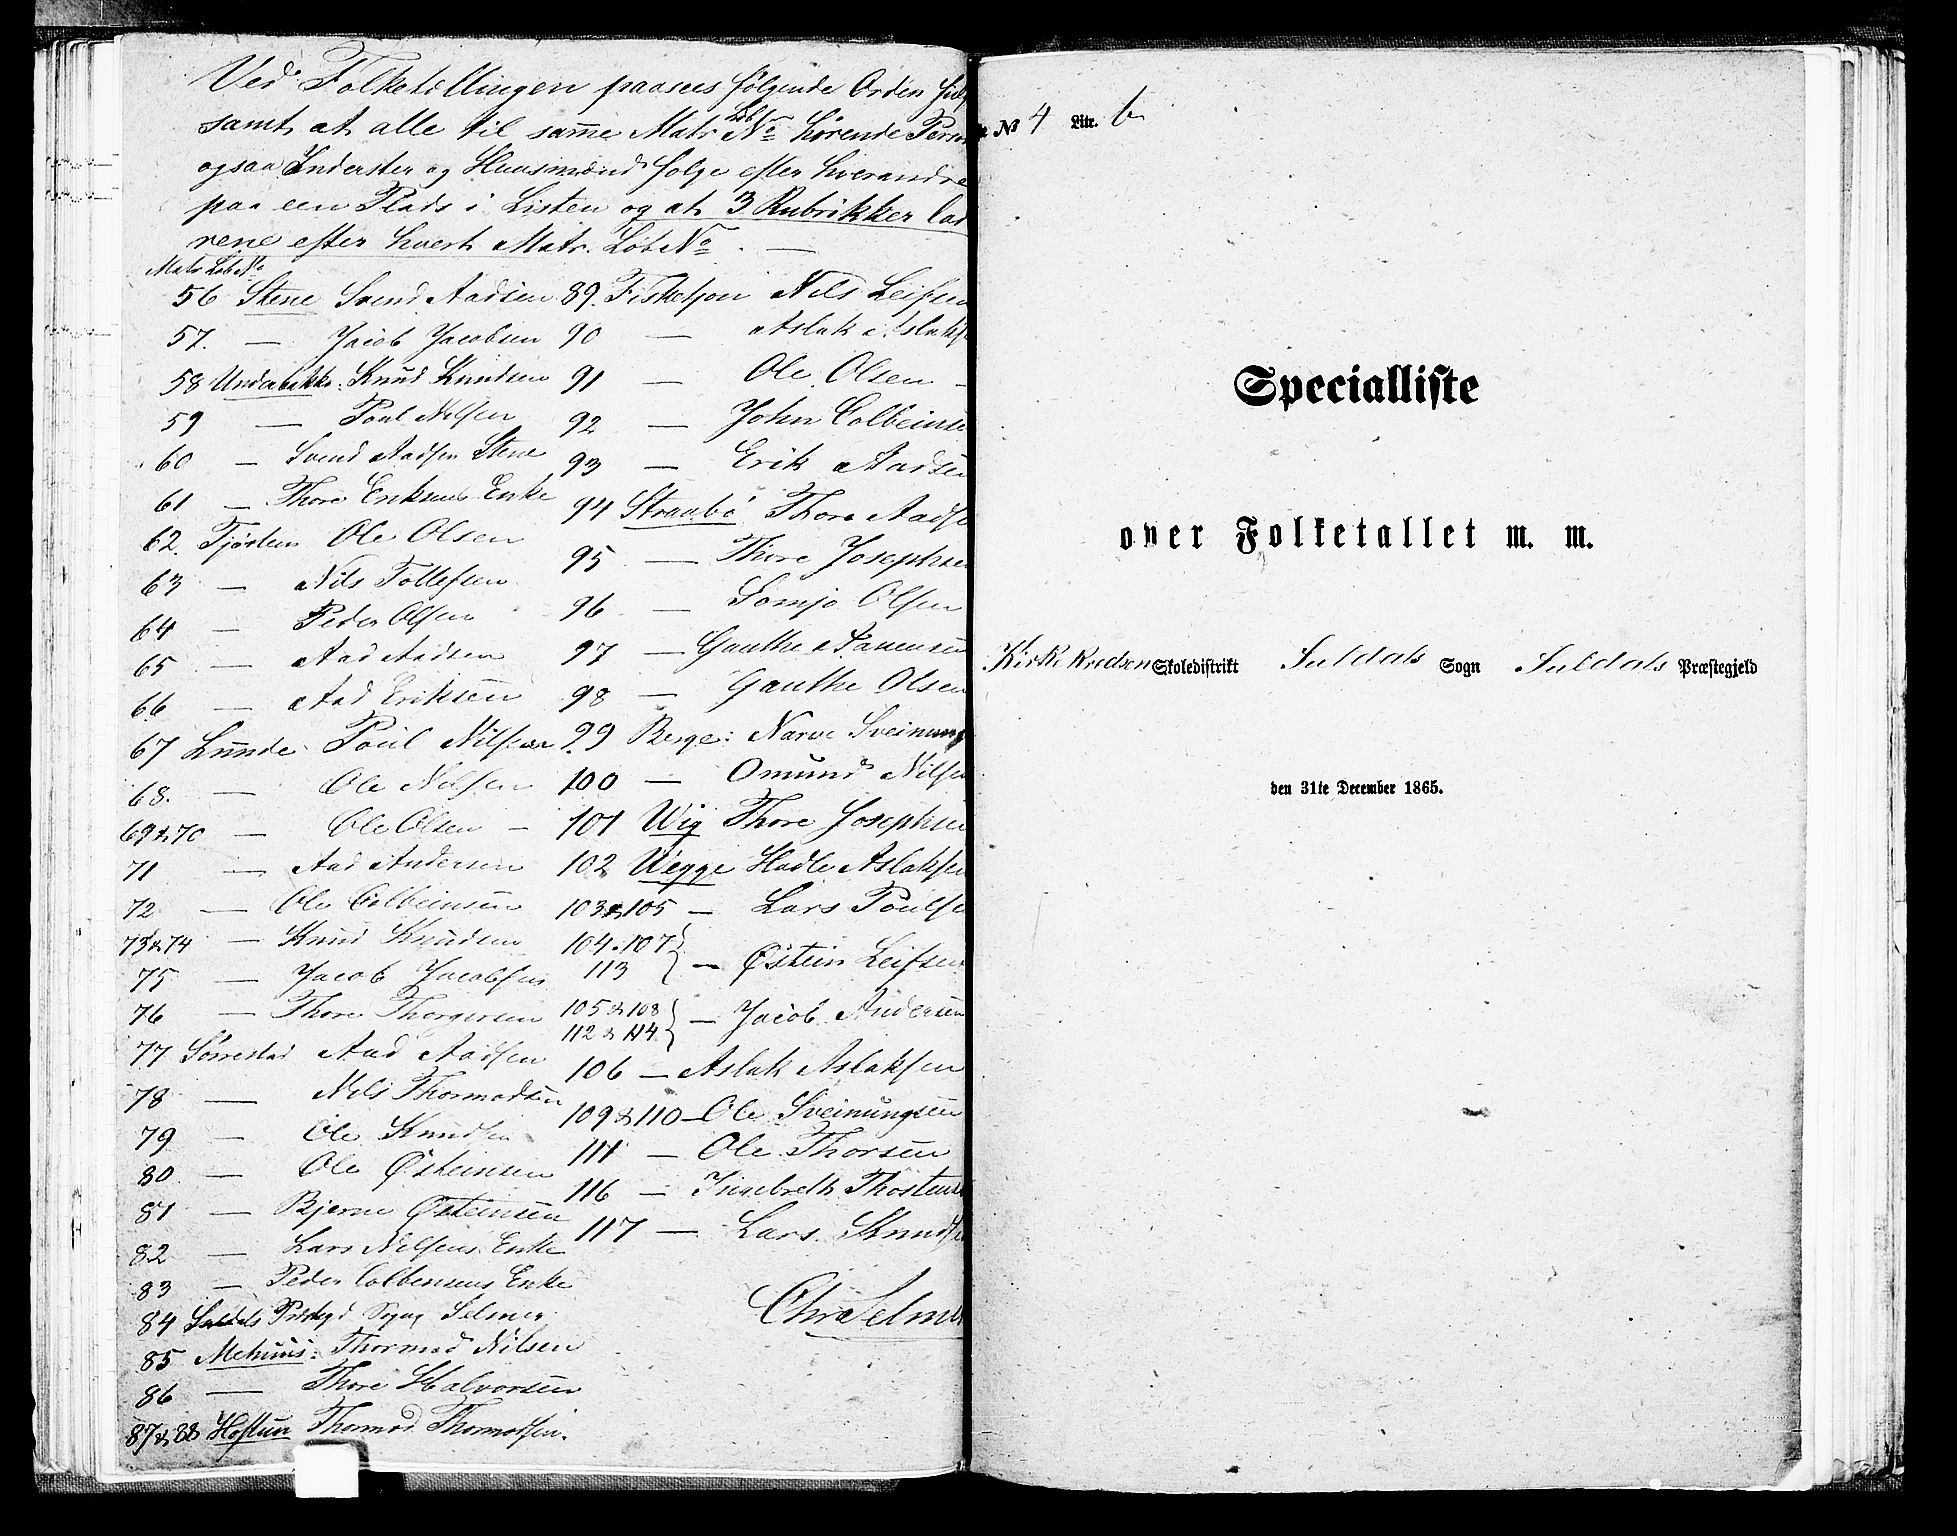 Ved Folketællingen paasees følgende Orden
samt at alle til samme Matr Løb No hørende
ogsaa Inderster og Huusmænd følge efter hverandre
paa een Plads i Listen og at 3 Rubrikker
rene efter hvert Matr. Løb No. —
Matr Løb No
56 Stene Svend Aadsen
57. — Jacob Jacobsen
58 Underbakke: Knud Knudsen
59 — Poul Nilsen
60 — Svend Aadsen Stene
61 — Thore Eriksens Enke
62. Tjøstem Ole Olsen
63 — Nils Tollefsen
64 — Peder Olsen
65 — Aad Aadsen
66 — Aad Eriksen
67 Lunde Poul Nilsen
68. — Ole Nilsen
69 & 70 — Ole Olsen —
71 — Aad Andersen
72 — Ole Colbeinsen
73 & 74 — Knud Knudsen
75 — Jacob Jacobsen
76 — Thore Thorgersen
77 Sørrestad Aad Aadsen
78 — Nils Thormodsen
79 — Ole Knudsen
80 — Ole Østeinsen
81 — Bjerne Østeinsen
82 — Lars Nilsens Enke
83 — Peder Colbensens Enke
84 Suldals Selmer
85 Mehuus: Thormod Nilsen
86 — Thore Halvorsen
87 & 88 Hoftun Thormod Thormodsen.
89. Fisketjon Nils Leifsen
90 — Aslak Aslaks
91 — Ole Olsen —
92 — John Colbeinse
93 — Erik Aadsen
94 Straabø Thore Aadse
95 — Thore Josephsen
96 — Somjo Olsen
97 — Gauthe
98 — Gauthe Olsen
99 Berge: Narve Sveinung
100 — Omund Nilsen
101 Wig Thore Josephsen
102 Wegge Hadle Aslaksen
103 & 105 — Lars Poulse
104. 107
113 } — Østein Leifsen
105 & 108
112 & 114. } — Jacob Andersen
106 — Aslak Aslaksen
109 & 110 — Ole Sveinungsen
111 — Ole Thorsen
116 — Ingebreth Thosten
117 — Lars Knudse
Chr Selm
No 4 Litr. b
Specialliste
over Folketallet m. m.
Kirkekredsen Skoledistrikt Suldals Sogn Suldals Præstegjeld
den 31te December 1865.